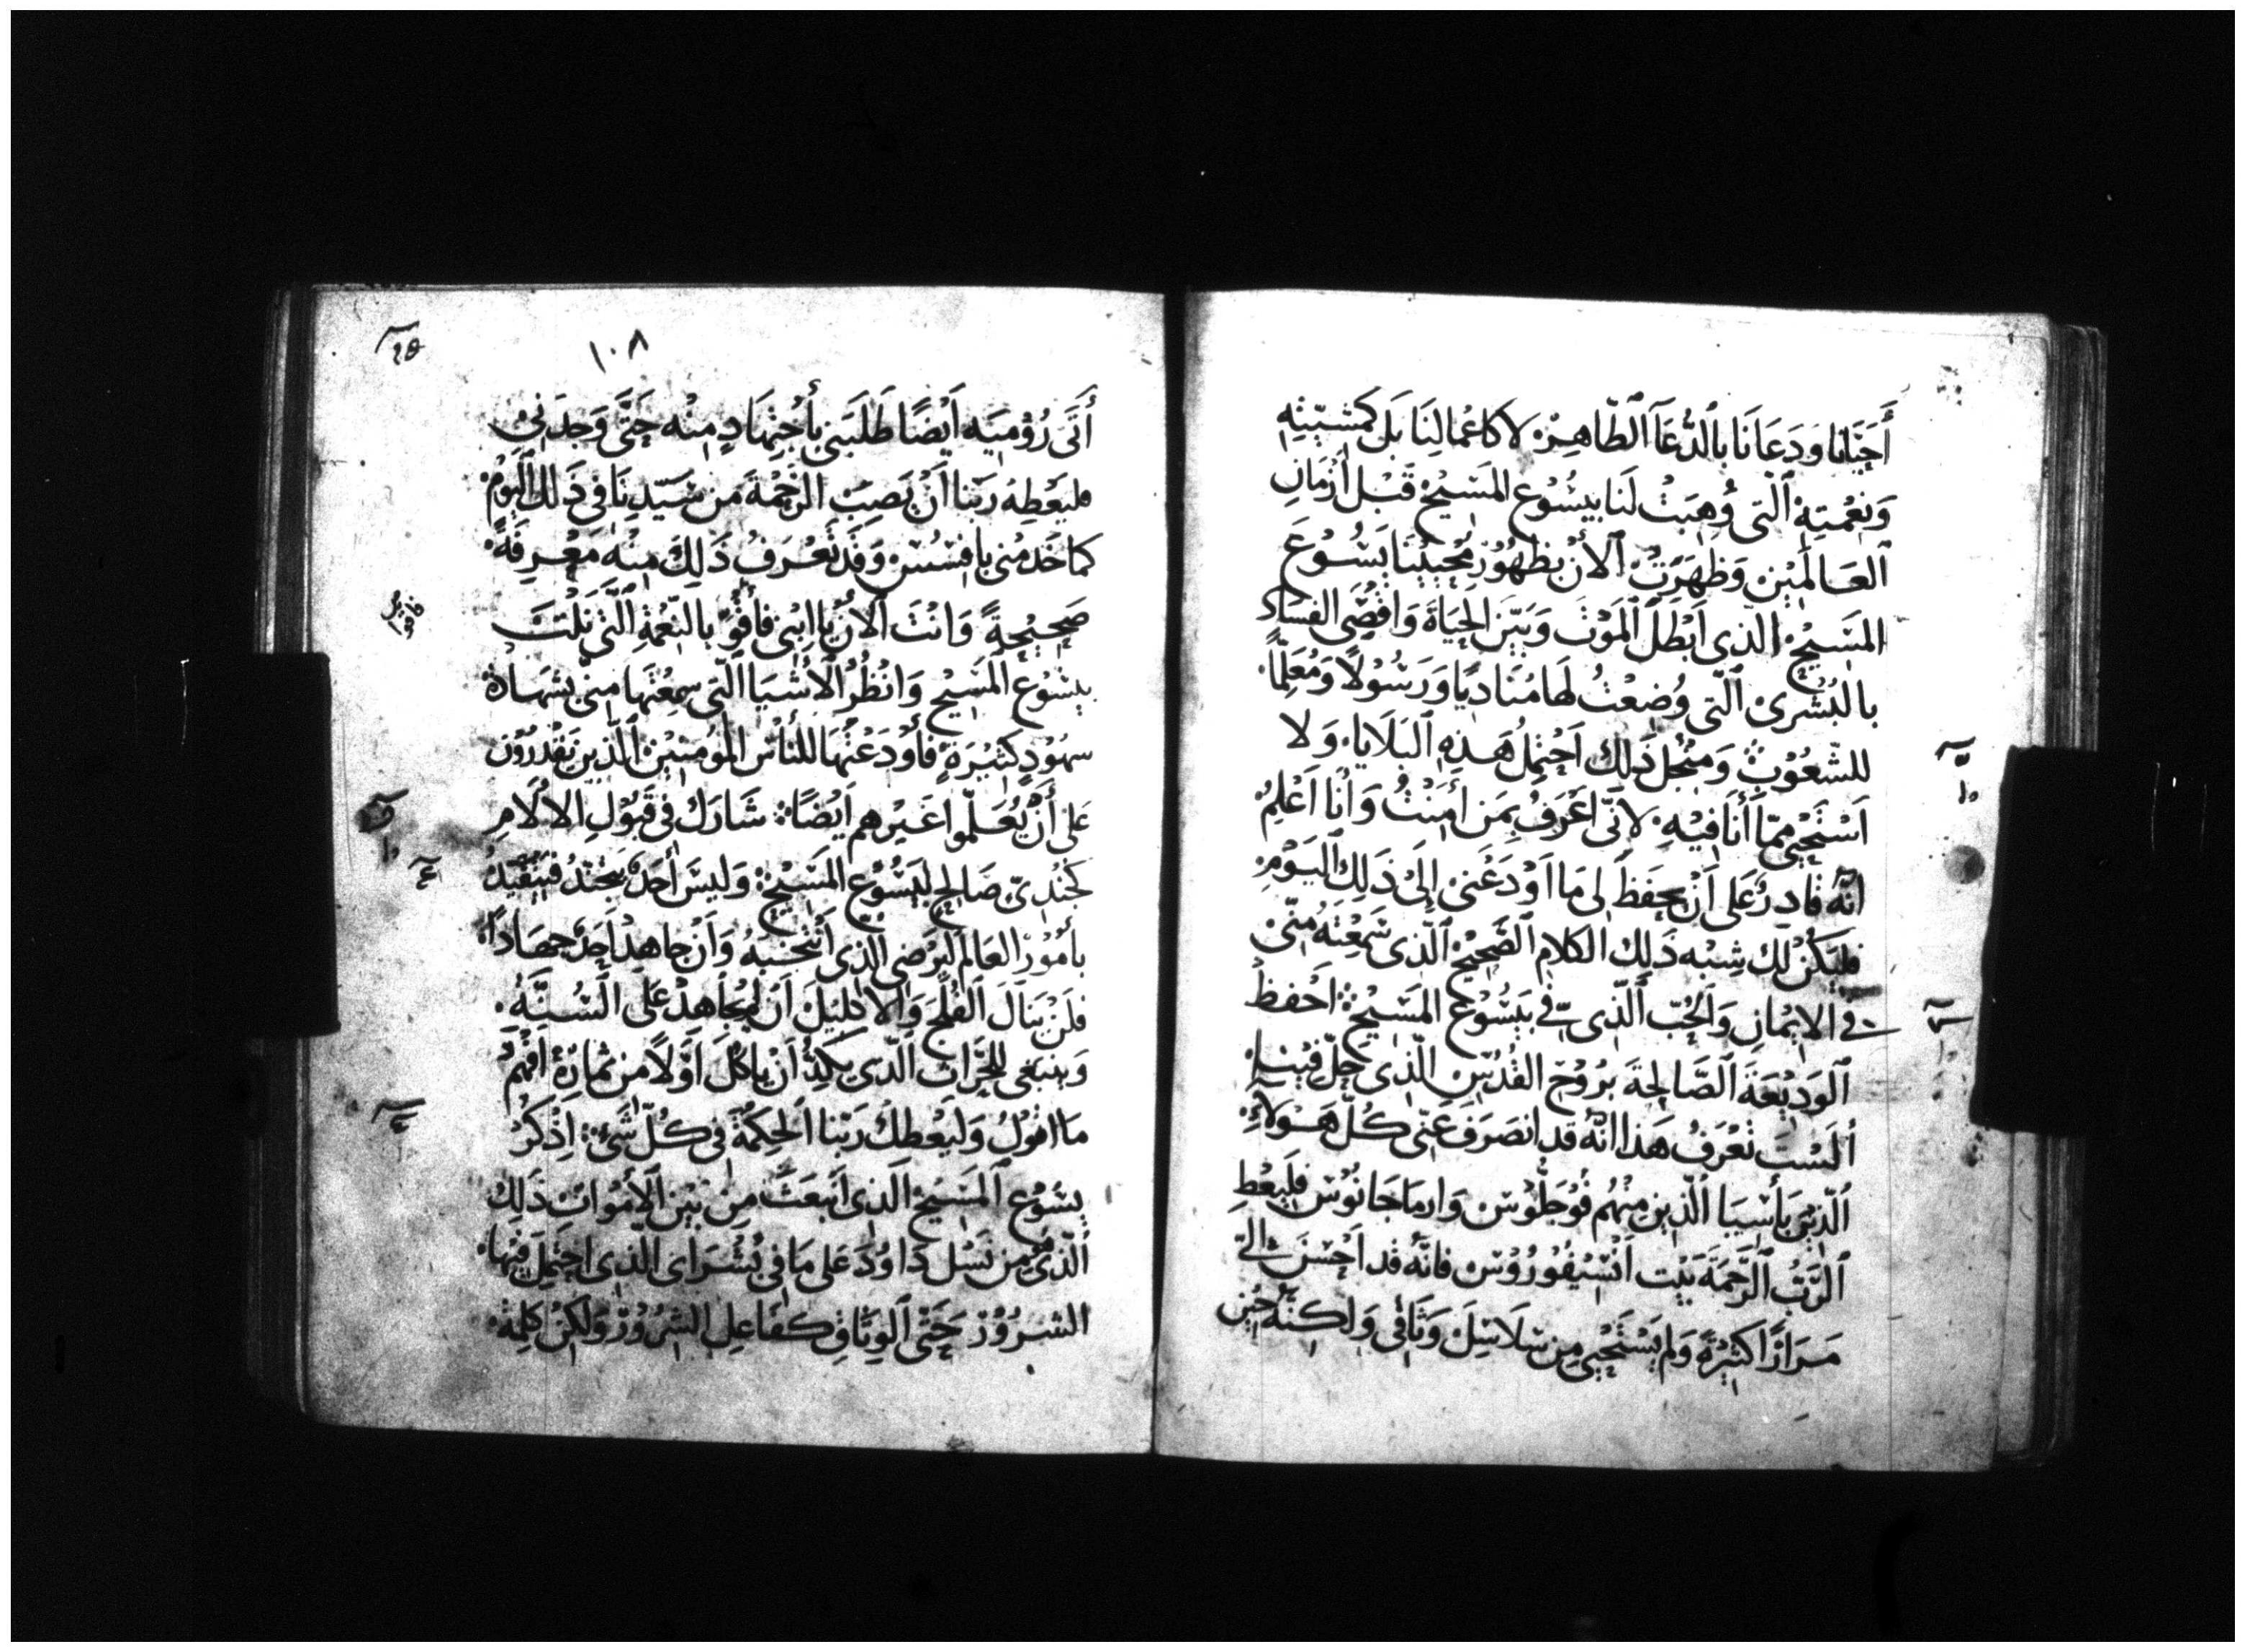 أَحيَانَا وَدَعَانَا بِالدُّعَآ ٱلطَّاهِرْ لا كَاعْمالِنَا بَل كمَشِيّتِهِ
وَنِعْمَتِهِ ٱلَّتى وُهِبَتْ لَنا بيَسُوْع المَسِيْح قَبْل أَزْمَانِ
ٱلعَالَمِيْن وَظَهَرَتْ ٱلأنْ بظهُوْرِ مُحْيِيْنَا يَسُوْعَ
المَسِيْح الَّذى أَبْطَلَ ٱلمَوْتَ وَبَيَّن الحَيَاةَ وَاقْصَى الفسَادَ
بالبُشرىْ ٱلَّتى وُضِعْتُ لَها مُنَادِيًا وَرَسُوْلًا وَمُعَلِّمًا
للشّعُوْبْ وَمِنْجلِ ذَلِكَ اَحْتمِلُ هَذِهِ ٱلبَلَايا وَلا
اَسْتَحْيى ممّا أَنَا فِيْهِ لانّى اعَرَفُ بِمَن أمَنتُ وَأنا اعْلمُ
انّهُ قادِرٌ عَلى أنْ يحفَظَ لى مَا اَوْدَعَنى إلىْ ذَلِكَ ٱليَوْمِ
فليَكُنْ لكَ شِبْه ذَلِكَ الكَلام ٱلصَّحِيْحِ ٱلَّذى سَمِعْتَهُ منّىْ
فى الايْمانِ وَٱلحُبّ ٱلَّذى فى يَسُوْع المَسِيْحِ احْفظ
ٱلوَدِيْعَةَ ٱلصَّالِحَةَ برُوْحِ القُدُسِ الَّذى حَلَّ فيْنا
ألَسْتَ تَعْرَفُ هَذا انّهُ قد انصَرَفَ عَنّى كُلّ هَؤلاءِ
ٱلَّذِيْنَ بأسْيَا الَّذِين مِنْهُم فُوْجَلُّوْسْ وَارماجَانُوْس فليُعْطِ
ٱلرَّبُّ ٱلرَّحْمَةَ بَيْت اَنْسِيْفُوْرُوْسْ فانّهُ قد أحْسَنَ إلىّ
مَرَارًا كَثِيْرَةً وَلم يَسْتَحْيِى مِن سَلَاسِلَ وَثَاقى وَلكِنّهُ حِيْن
١٠٨
أَتَى رُوْميَه أَيْضًا طَلَبَنى بأجْتِهَادٍ مِنْه حَتَّى وَجَدَنى
فليُعْطِهُ رَبّنا أَنْ يَصِبَ الرَّحْمَةَ مَن سَيّدِنَا فى ذَلكَ ٱليَوْمْ
كما خَدمَنى بافسُسْ وَقد تَعْرَفُ ذَلِكَ مِنْهُ مَعْرِفَةً
صَحِيْحةً وَانْتَ ٱلانْ يا ابْنى فأقْوَ بالنّعْمَةِ ٱلَّتى نِلْتَ
بيَسُوْع المَسِيْحِ وَانْظُرْ ٱلأشْيَا ٱلَّتى سمِعْتَها مِنىْ بشَهَادَة
شهُوْدٍ كَثِيْرَةٍ فأوْدعْهَا للنأسِ المؤمِنِيْن ٱلَّذِيْن يَقْدرُوْن
عَلى أَنْ يُعَلّموا غَيْرهم أَيْضًا شَارَك فى قَبُوْلِ الالَامِ
كَجُنْدىّ صَالحٍ ليَسُوْع المَسِيْحِ وَليسَ أَحدٌ يَتجَنّدُ فيَتقيّدُ
بأمُوْرْ العَالم ليَرْضى الَّذى أَنْتَخَبَهُ وَأَنْ جاهِدْ أَحَدٌ جهَادًا
فلَنْ يَنَالَ ٱلفلْجَ وَٱلاكلِيْلَ أن لم يُجاهِدْ عَلى السُّنّةُ
وَينبَغى للحَرَّاثِ الَّذى يَكدُّ أَنْ يأكُلَ أَوَّلًا مِن ثمارِهِ افْهَمْ
مَا اقوْلُ وَليُعْطِكْ رَبّنا ٱلحِكمَةَ فى كُلّ شَئٍ اذْكُرْ
يسَوُعَ ٱلمَسِيْح ٱلَّذى انبَعَثَ مِن بَيْن ٱلأمْوَاتِ ذَلِكَ
ٱلَّذى هُوَ مِن نَسْل دَاوُدَ عَلى مَا فى بُشْرَاى الَّذى احتَمِل فيْهَا
الشرُوْرْ حَتَّى ٱلوَثَاقِ كفَاعِلِ الشرُوْرْ وَلكِنْ كلمَةُ